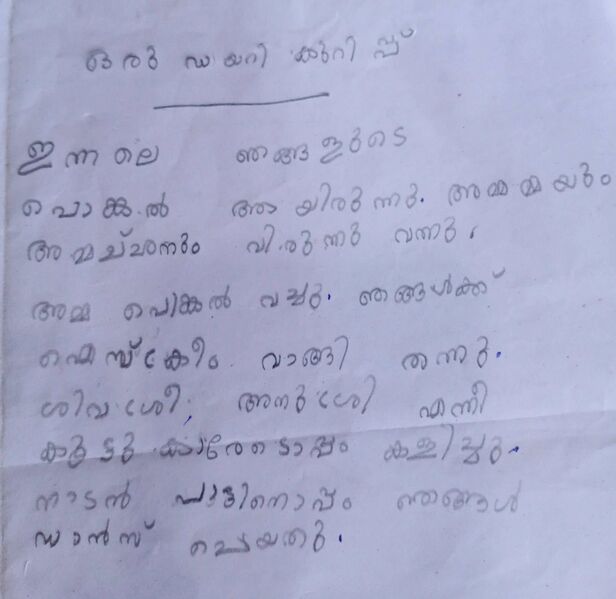 ഒരു ഡയറി കുറിപ്പ്
ഇന്നലെ ഞങ്ങളുടെ
പൊങ്കൽ ആയിരുന്നു. അമ്മമ്മയും
അമ്മച്ചനും വിരുന്നു വന്നു.
അമ്മ പെങ്കൽ വച്ചു. ഞങ്ങൾക്ക്
ഐസ്ക്രീം വാങ്ങി തന്നു.
ശിവശ്രീ, അനുശ്രീ എന്നീ
കൂട്ടുകാരോടൊപ്പം കളിച്ചു.
നാടൻ പാട്ടിനൊപ്പം ഞങ്ങൾ
ഡാൻസ് ചെയതു.